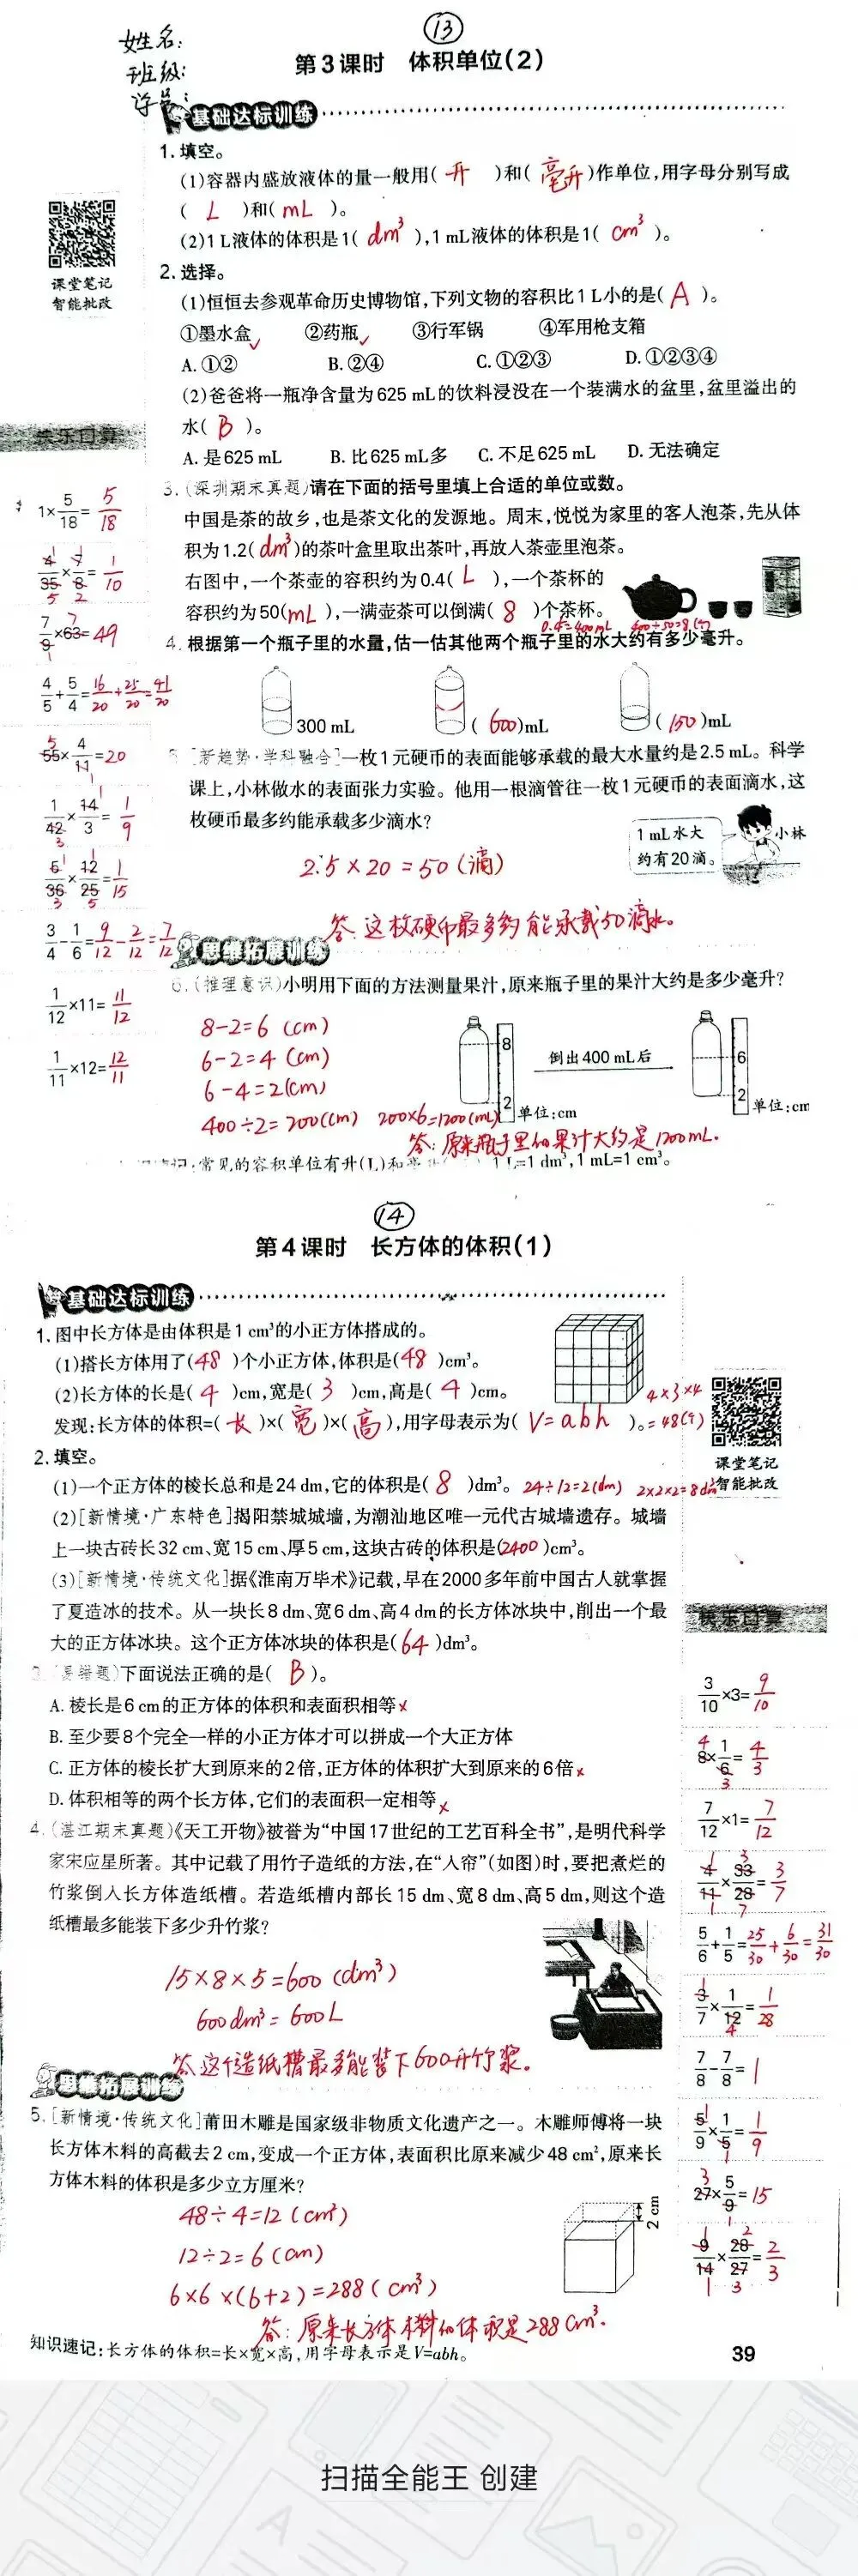 13
姓名:
班级:
学号:
第3课时 体积单位(2)
基础达标训练
1.填空。
(1)容器内盛放液体的量一般用( 升 )和( 毫升 )作单位,用字母分别写成
( L )和( mL )。
(2)1 L液体的体积是1( dm³ ),1 mL液体的体积是1( cm³ )。
课堂笔记
智能批改
2.选择。
(1)恒恒去参观革命历史博物馆,下列文物的容积比1 L小的是( A )。
①墨水盒✓ ②药瓶✓ ③行军锅 ④军用枪支箱
A.①② B.②④ C.①②③ D.①②③④
(2)爸爸将一瓶净含量为625 mL的饮料浸没在一个装满水的盆里,盆里溢出的
水( B )。
A.是625 mL B.比625 mL多 C.不足625 mL D.无法确定
3.(深圳期末真题)请在下面的括号里填上合适的单位或数。
中国是茶的故乡,也是茶文化的发源地。周末,悦悦为家里的客人泡茶,先从体
积为1.2( dm³ )的茶叶盒里取出茶叶,再放入茶壶里泡茶。
右图中,一个茶壶的容积约为0.4( L ),一个茶杯的
容积约为50( mL ),一满壶茶可以倒满( 8 )个茶杯。
0.4L=400mL 400÷50=8(个)
4.根据第一个瓶子里的水量,估一估其他两个瓶子里的水大约有多少毫升。
300 mL ( 600 )mL ( 150 )mL
5.[新趋势·学科融合]一枚1元硬币的表面能够承载的最大水量约是2.5 mL。科学
课上,小林做水的表面张力实验。他用一根滴管往一枚1元硬币的表面滴水,这
枚硬币最多约能承载多少滴水?
1 mL水大
约有20滴。
小林
2.5×20=50(滴)
答:这枚硬币最多约能承载50滴水。
思维拓展训练
6.(推理意识)小明用下面的方法测量果汁,原来瓶子里的果汁大约是多少毫升?
8-2=6 (cm)
6-2=4 (cm)
6-4=2(cm)
400÷2=200(cm) 200×6=1200(mL)
8
2
单位:cm
倒出400 mL后
6
2
单位:cm
答:原来瓶子里的果汁大约是1200mL.
:常见的容积单位有升(L)和 1 L=1 dm³,1 mL=1 cm³。
快乐口算
1×5/18=5/18
4/35×7/8=1/10
7/9×63=49
4/5+5/4=16/20+25/20=41/20
55×4/11=20
1/42×14/3=1/9
6/36×12/25=1/15
3/4-1/6=9/12-2/12=7/12
1/12×11=11/12
1/11×12=12/11
14
第4课时 长方体的体积(1)
基础达标训练
1.图中长方体是由体积是1 cm³的小正方体搭成的。
(1)搭长方体用了( 48 )个小正方体,体积是( 48 )cm³。
(2)长方体的长是( 4 )cm,宽是( 3 )cm,高是( 4 )cm。
4×3×4
=48(个)
发现:长方体的体积=( 长 )×( 宽 )×( 高 ),用字母表示为( V=abh )。
课堂笔记
智能批改
2.填空。
(1)一个正方体的棱长总和是24 dm,它的体积是( 8 )dm³。 24÷12=2(dm) 2×2×2=8dm³
(2)[新情境·广东特色]揭阳禁城城墙,为潮汕地区唯一元代古城墙遗存。城墙
上一块古砖长32 cm、宽15 cm、厚5 cm,这块古砖的体积是( 2400 )cm³。
(3)[新情境·传统文化]据《淮南万毕术》记载,早在2000多年前中国古人就掌握
了夏造冰的技术。从一块长8 dm、宽6 dm、高4 dm的长方体冰块中,削出一个最
大的正方体冰块。这个正方体冰块的体积是( 64 )dm³。
3.(易错题)下面说法正确的是( B )。
A.棱长是6 cm的正方体的体积和表面积相等×
B.至少要8个完全一样的小正方体才可以拼成一个大正方体
C.正方体的棱长扩大到原来的2倍,正方体的体积扩大到原来的6倍×
D.体积相等的两个长方体,它们的表面积一定相等×
4.(湛江期末真题)《天工开物》被誉为“中国17世纪的工艺百科全书”,是明代科学
家宋应星所著。其中记载了用竹子造纸的方法,在“入帘”(如图)时,要把煮烂的
竹浆倒入长方体造纸槽。若造纸槽内部长15 dm、宽8 dm、高5 dm,则这个造
纸槽最多能装下多少升竹浆?
15×8×5=600(dm³)
600dm³=600L
答:这个造纸槽最多能装下600升竹浆。
思维拓展训练
5.[新情境·传统文化]莆田木雕是国家级非物质文化遗产之一。木雕师傅将一块
长方体木料的高截去2 cm,变成一个正方体,表面积比原来减少48 cm²,原来长
方体木料的体积是多少立方厘米?
48÷4=12(cm²)
12÷2=6(cm)
6×6×(6+2)=288(cm³)
2 cm
答:原来长方体木料的体积是288cm³.
知识速记:长方体的体积=长×宽×高,用字母表示是V=abh。
39
快乐口算
3/10×3=9/10
8×1/6=4/3
7/12×1=7/12
4/11×33/28=3/7
5/6+1/5=25/30+6/30=31/30
3/7×1/12=1/28
7/8-7/8=1
5/9×1/5=1/9
27×5/9=15
9/14×28/27=2/3
扫描全能王 创建